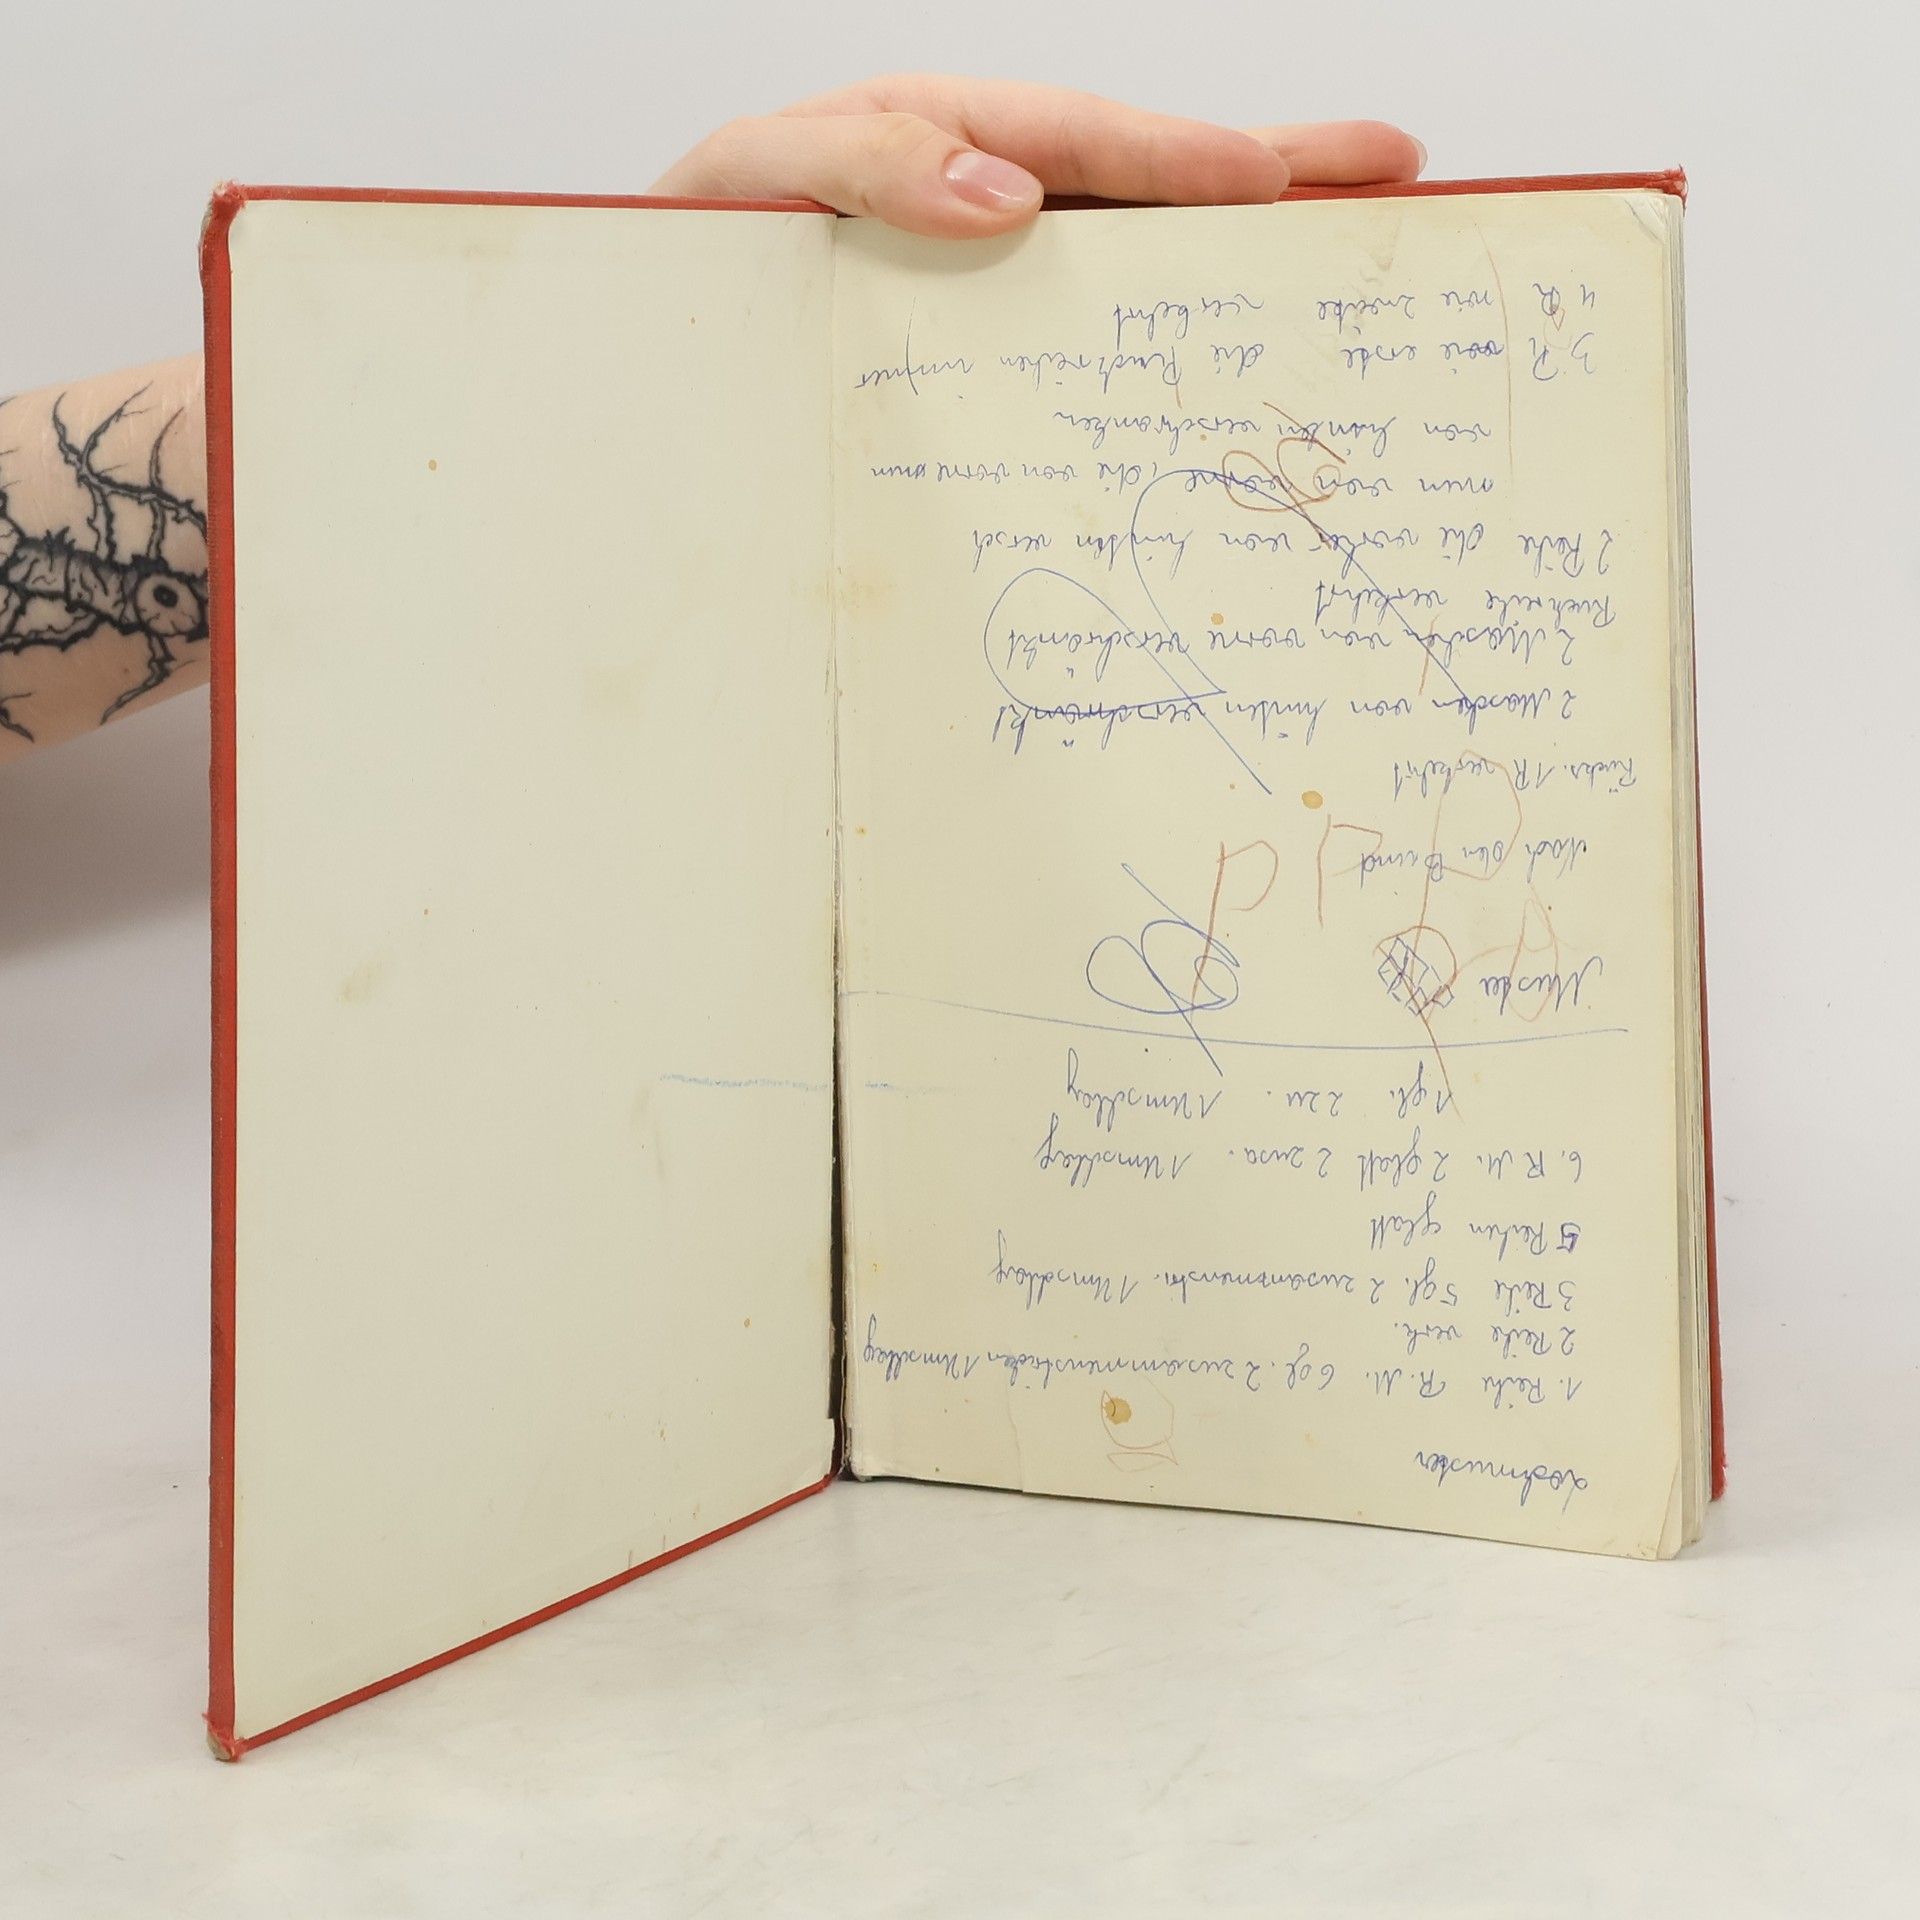 Lochmuster
1. Reihe R.M. 6 gl. 2 zusammenstricken 1 Umschlag
2 Reihe verk.
3 Reihe 5 gl. 2 zusammenstr. 1 Umschlag
5 Reihen glatt
6. R M. 2 glatt 2 zusa. 1 Umschlag
1 gl. 2 zu. 1 Umschlag
Muster
Nach den Bund
Rücks. 1 R verkehrt
2 Maschen von hinten verschränkt
2 Maschen von vorne verschränkt
Rückreihe verkehrt
2 Reihe die vorher von hinten versch
nun von vorne, die von vorne nun
von hinten verschränken
3 R wie erste die Rückreihen immer
4 R wie zweite verkehrt